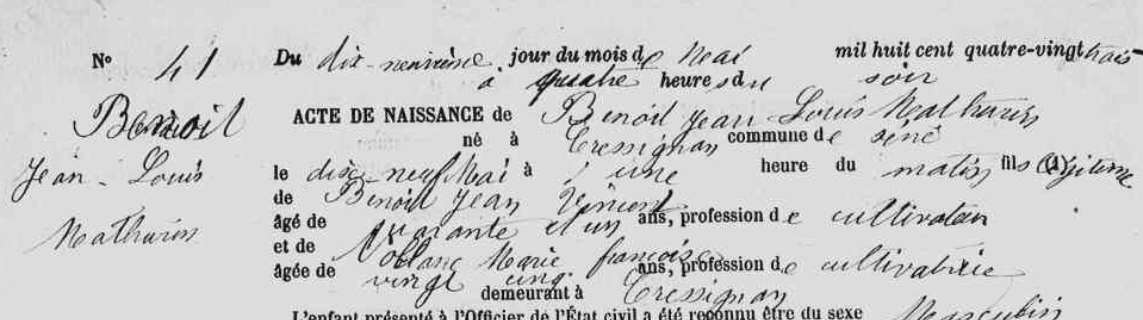 N° 41
Du dix-neuvième jour du mois de Mai mil huit cent quatre-vingt trois
à quatre heures du soir
Benoit
ACTE DE NAISSANCE de Benoit Jean Louis Mathurin
né à Cressignan commune de Séné
Jean-Louis
le dix-neuf Mai à une heure du matin fils légitime
de Benoit Jean Vincent
Mathurin
âgé de quarante et un ans, profession de cultivateur
et de Marie françoise
âgée de vingt cinq ans, profession de cultivatrice
demeurant à Cressignan
L'enfant présenté à l'Officier de l'État civil a été reconnu être du sexe Masculin